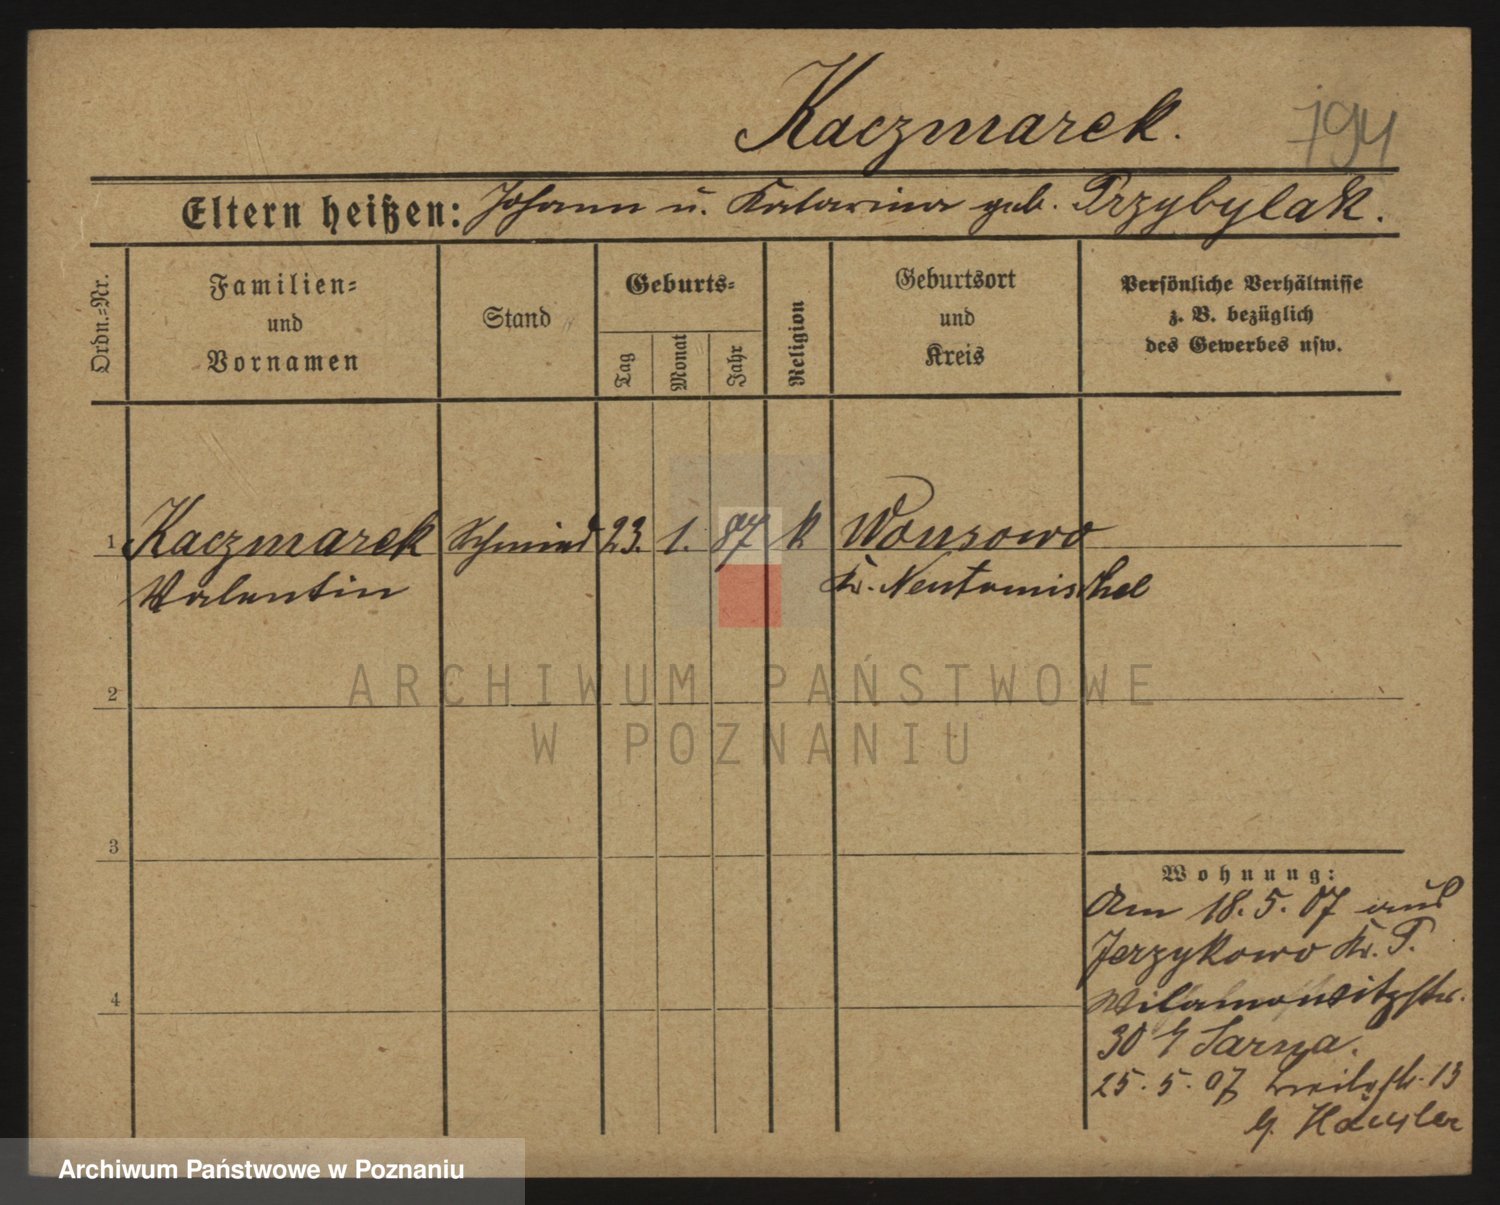 Kaczmarek. 794
Eltern heißen: Johann u. Katarina geb. Przybylak.
Ordn.-Nr.
Familien-
und
Vornamen
Stand
Geburts-
Tag
Monat
Jahr
Religion
Geburtsort
und
Kreis
Persönliche Verhältnisse
z. B. bezüglich
des Gewerbes usw.
1 Kaczmarek Schmied 23. 1. 87 k Wonsowo
Valentin Kr. Neutomischel
2
ARCHIWUM PAŃSTWOWE
W POZNANIU
3
Wohnung:
Am 18. 5. 07 aus
Jerzykowo Kr. P.
Wilamowitzstr.
4
30 Sarna.
25. 5. 07 13
Häusler
Archiwum Państwowe w Poznaniu